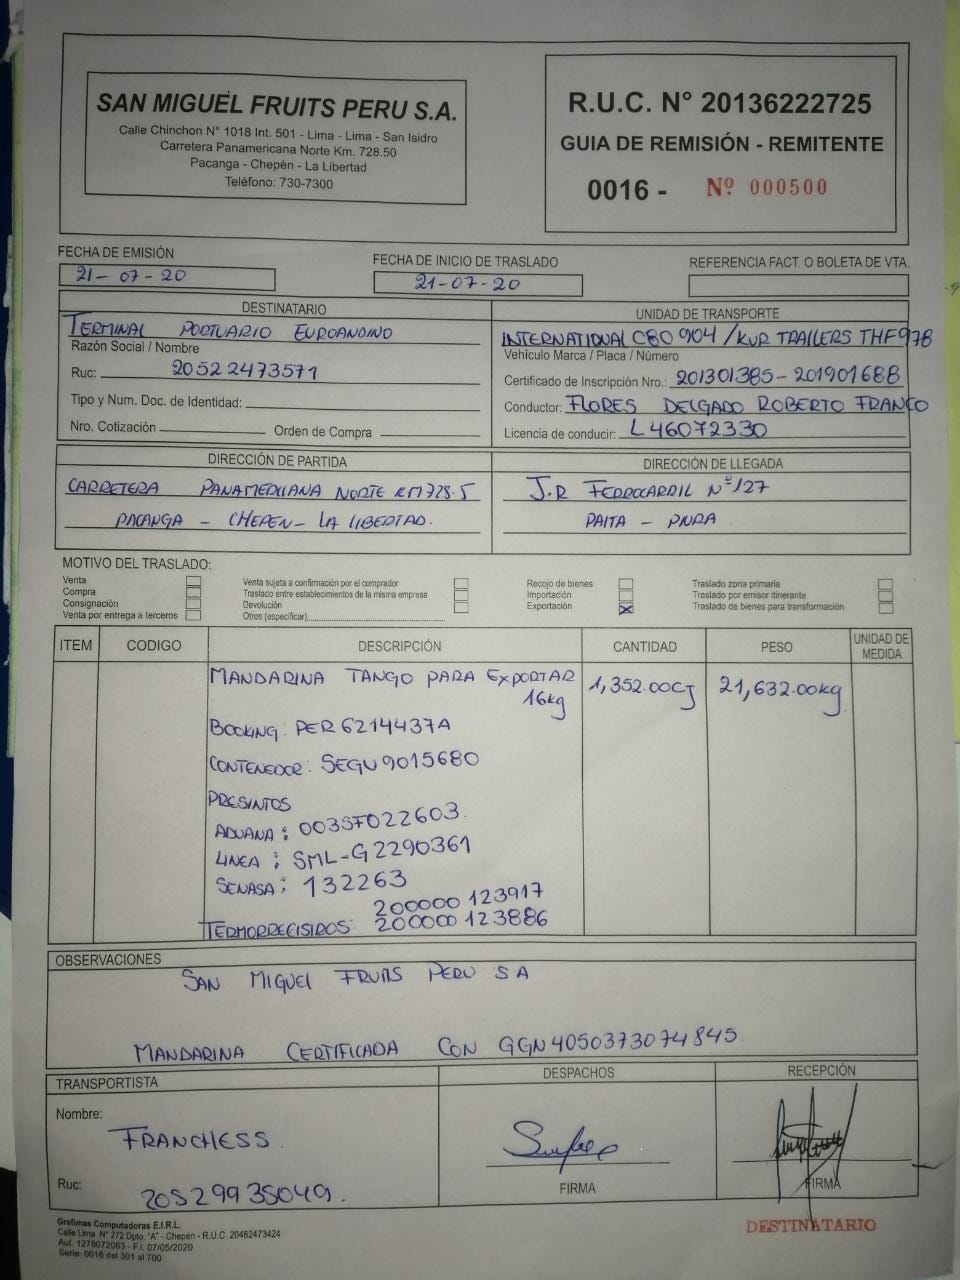 SAN MIGUEL FRUITS PERU S.A.
Calle Chinchon N° 1018 Int. 501 - Lima - Lima - San Isidro
Carretera Panamericana Norte Km. 728.50
Pacanga - Chepén - La Libertad
Teléfono: 730-7300
R.U.C. N° 20136222725
GUIA DE REMISIÓN - REMITENTE
0016 - Nº 000500
FECHA DE EMISIÓN
21-07-20
FECHA DE INICIO DE TRASLADO
21-07-20
REFERENCIA FACT. O BOLETA DE VTA.
DESTINATARIO
TERMINAL PORTUARIO EUROANDINO
Razón Social / Nombre
Ruc: 20522473571
Tipo y Num. Doc. de Identidad:
Nro. Cotización Orden de Compra
UNIDAD DE TRANSPORTE
INTERNATIONAL C80 904 / KUR TRAILERS THF978
Vehículo Marca / Placa / Número
Certificado de Inscripción Nro.: 201301385-201901688
Conductor: FLORES DELGADO ROBERTO FRANCO
Licencia de conducir: L46072330
DIRECCIÓN DE PARTIDA
CARRETERA PANAMERICANA NORTE KM 728.5
PACANGA - CHEPEN - LA LIBERTAD.
DIRECCIÓN DE LLEGADA
J.R FERROCARRIL Nº 127
PAITA - PIURA
MOTIVO DEL TRASLADO:
Venta
Compra
Consignación
Venta por entrega a terceros
Venta sujeta a confirmación por el comprador
Traslado entre establecimientos de la misma empresa
Devolución
Otros (especificar)
Recojo de bienes
Importación
Exportación X
Traslado zona primaria
Traslado por emisor itinerante
Traslado de bienes para transformación
ITEM CODIGO DESCRIPCIÓN CANTIDAD PESO UNIDAD DE MEDIDA
MANDARINA TANGO PARA EXPORTAR 1,352.00CJ 21,632.00kg
16kg
BOOKING: PER6214437A
CONTENEDOR: SEGU9015680
PRESINTOS
ADUANA: 003SF022603.
LINEA: SML-G2290361
SENASA: 132263
200000 123917
TERMORREGISTROS: 200000 123886
OBSERVACIONES
SAN MIGUEL FRUITS PERU S A
MANDARINA CERTIFICADA CON GGN4050373074845.
TRANSPORTISTA
Nombre:
FRANCHESS
Ruc: 20529935049.
DESPACHOS
FIRMA
RECEPCIÓN
FIRMA
DESTINATARIO
Grafimas Computadoras E.I.R.L.
Calle Lima N° 272 Dpto. "A" - Chepén - R.U.C. 20482473424
Aut. 1278072063 - F.I. 07/05/2020
Serie: 0016 del 301 al 700